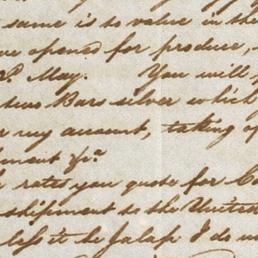 same is to value in the
opened for produce,
May. You will
two Bars silver which
my account, taking
rates you quote for
shipment to the United
less it be Jalap I do